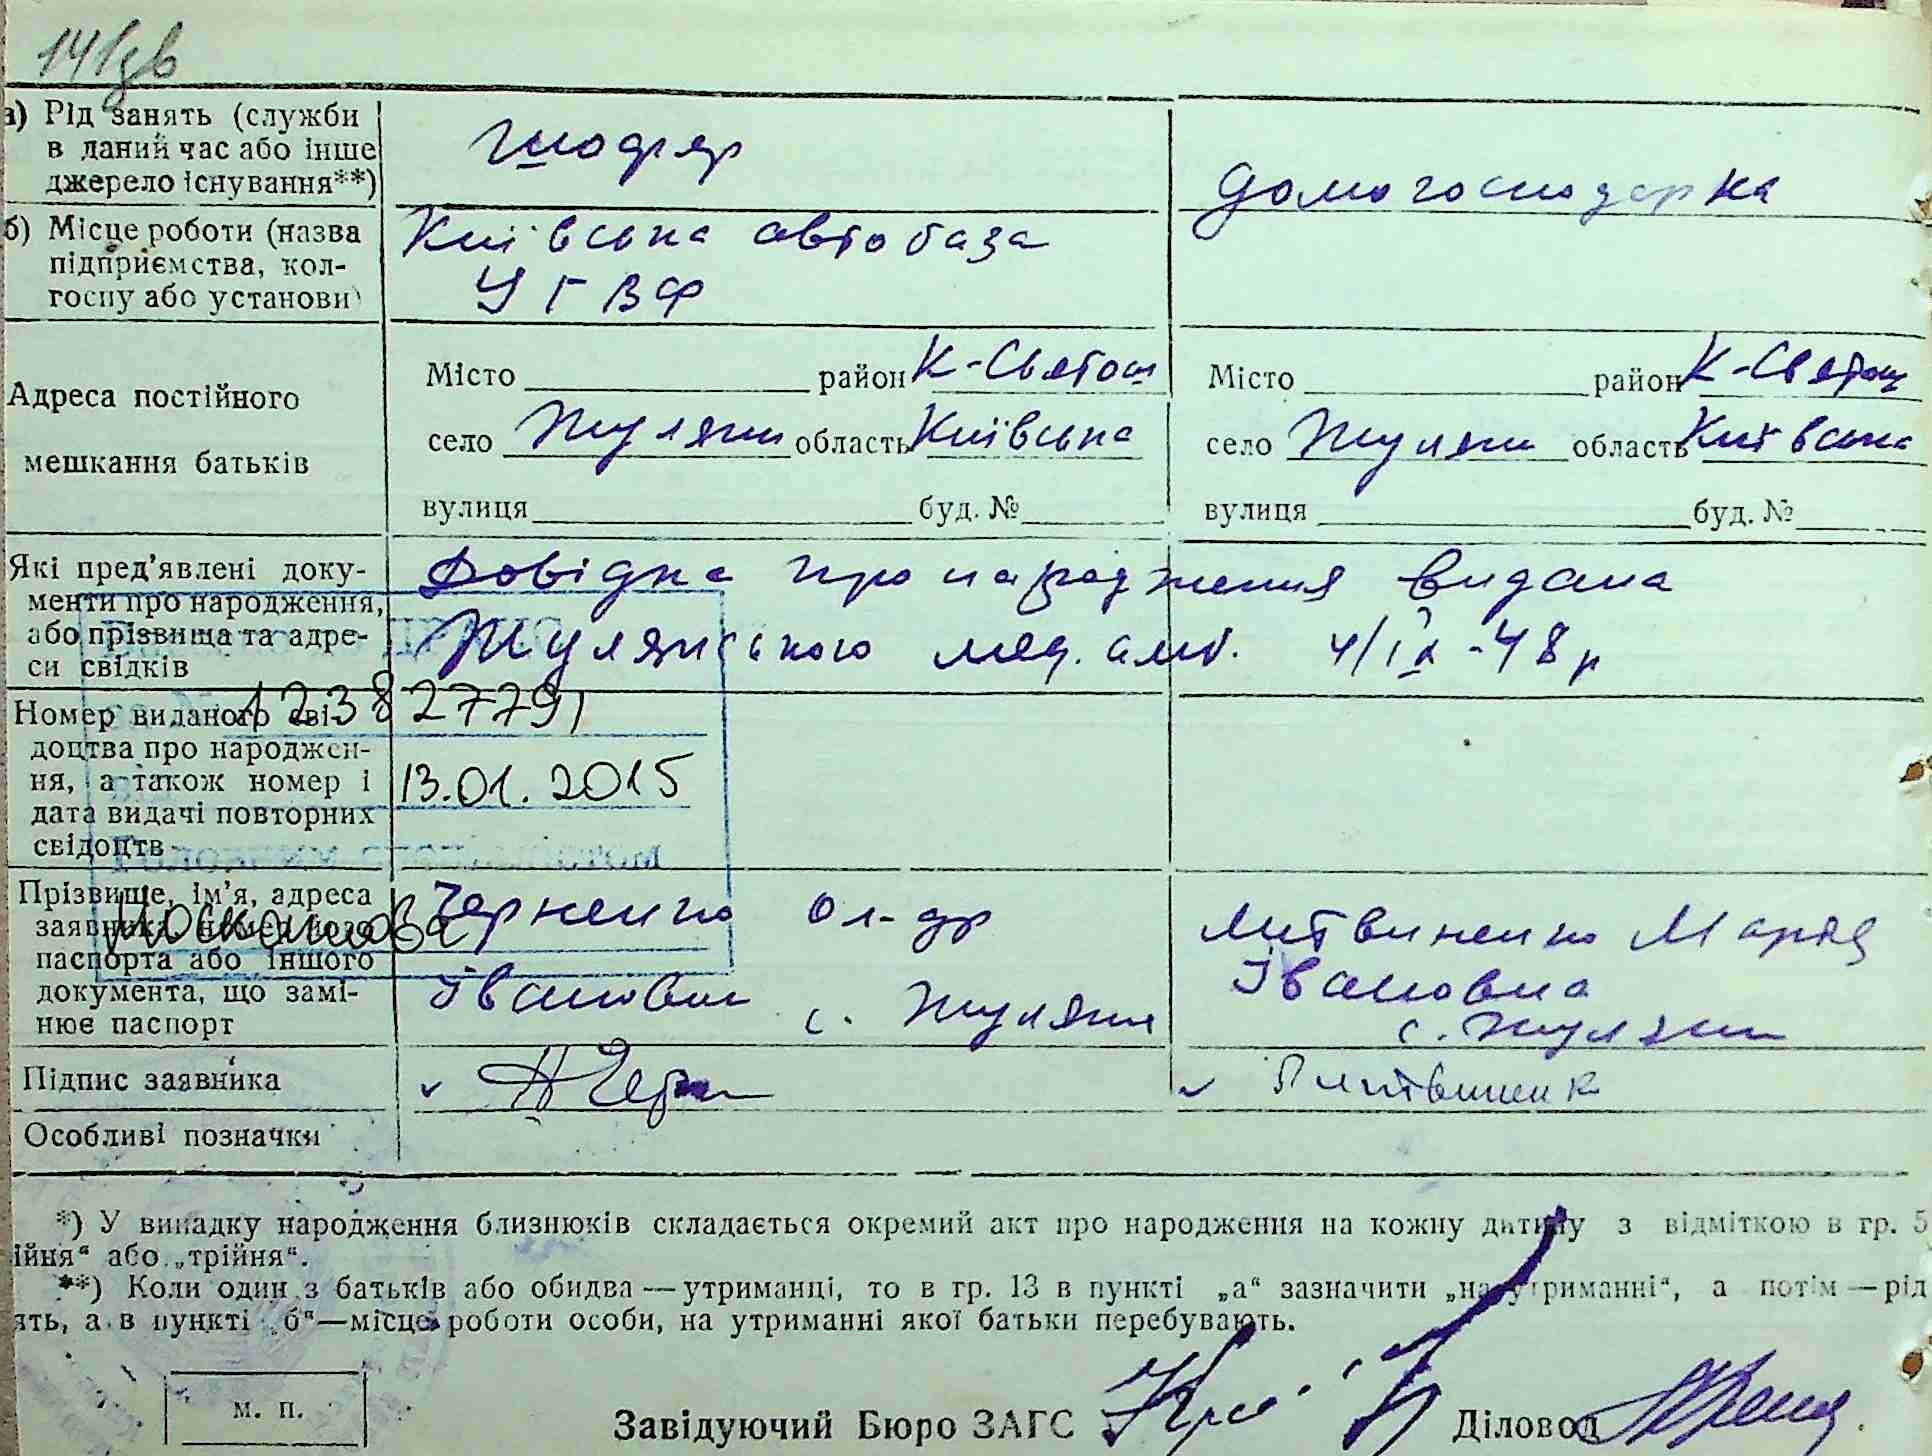 141зв
а) Рід занять (служби
в даний час або інше
джерело існування**)
шофер
домогосподарка
б) Місце роботи (назва
підприємства, кол-
госпу або установи)
Київська автобаза
УГВФ
Адреса постійного
мешкання батьків
Місто район К-Святош
село Жуляни область Київська
вулиця буд. №
Місто район К-Святош
село Жуляни область Київська
вулиця буд. №
Які пред’явлені доку-
менти про народження,
або прізвища та адре-
си свідків
Довідка про народження видана
Жулянського мед. амб. 4/ІХ-48 р
Номер виданого сві-
доцтва про народжен-
ня, а також номер і
дата видачі повторних
свідоцтв
123827791
13.01.2015
Прізвище, ім’я, адреса
заявника, номер його
паспорта або іншого
документа, що замі-
нює паспорт
Черненко Ол-др
Іванович с. Жуляни
Литвиненко Марія
Івановна
с. Жуляни
Підпис заявника
Литвиненк
Особливі позначки
*) У випадку народження близнюків складається окремий акт про народження на кожну дитину з відміткою в гр. 5
ійня“ або „трійня“.
**) Коли один з батьків або обидва — утриманці, то в гр. 13 в пункті „а“ зазначити „на утриманні“, а потім — рід
ять, а в пункті „б“ — місце роботи особи, на утриманні якої батьки перебувають.
м. п.
Завідуючий Бюро ЗАГС
Діловод